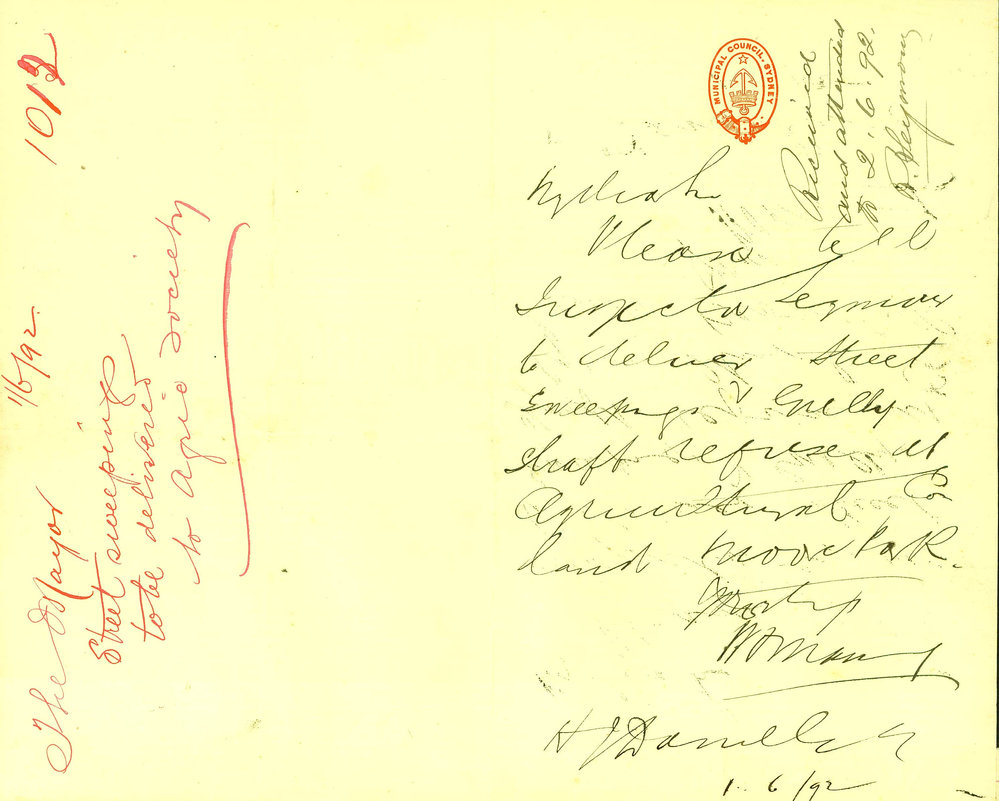 1012
1/6/92
The Mayor
Street sweepings
to be delivered
to Agric Society
MUNICIPAL COUNCIL. SYDNEY
Received
and attended
to 2.6.92.
R. Seymour
My dear Sir
Please tell
Inspector Seymour
to deliver Street
Sweepings &
refuse at
Agricultural Co
land Moore Park.
W P Manning
H J Daniels
1 6/92